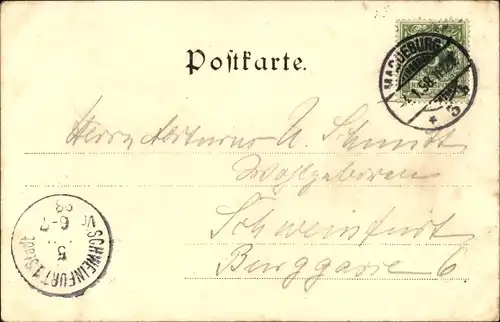 Postkarte.
MAGDEBURG
Herrn A. Schmidt
Wohlgeboren
Schweinfurt
Burggasse 6
SCHWEINFURT 1
5
6-7
98